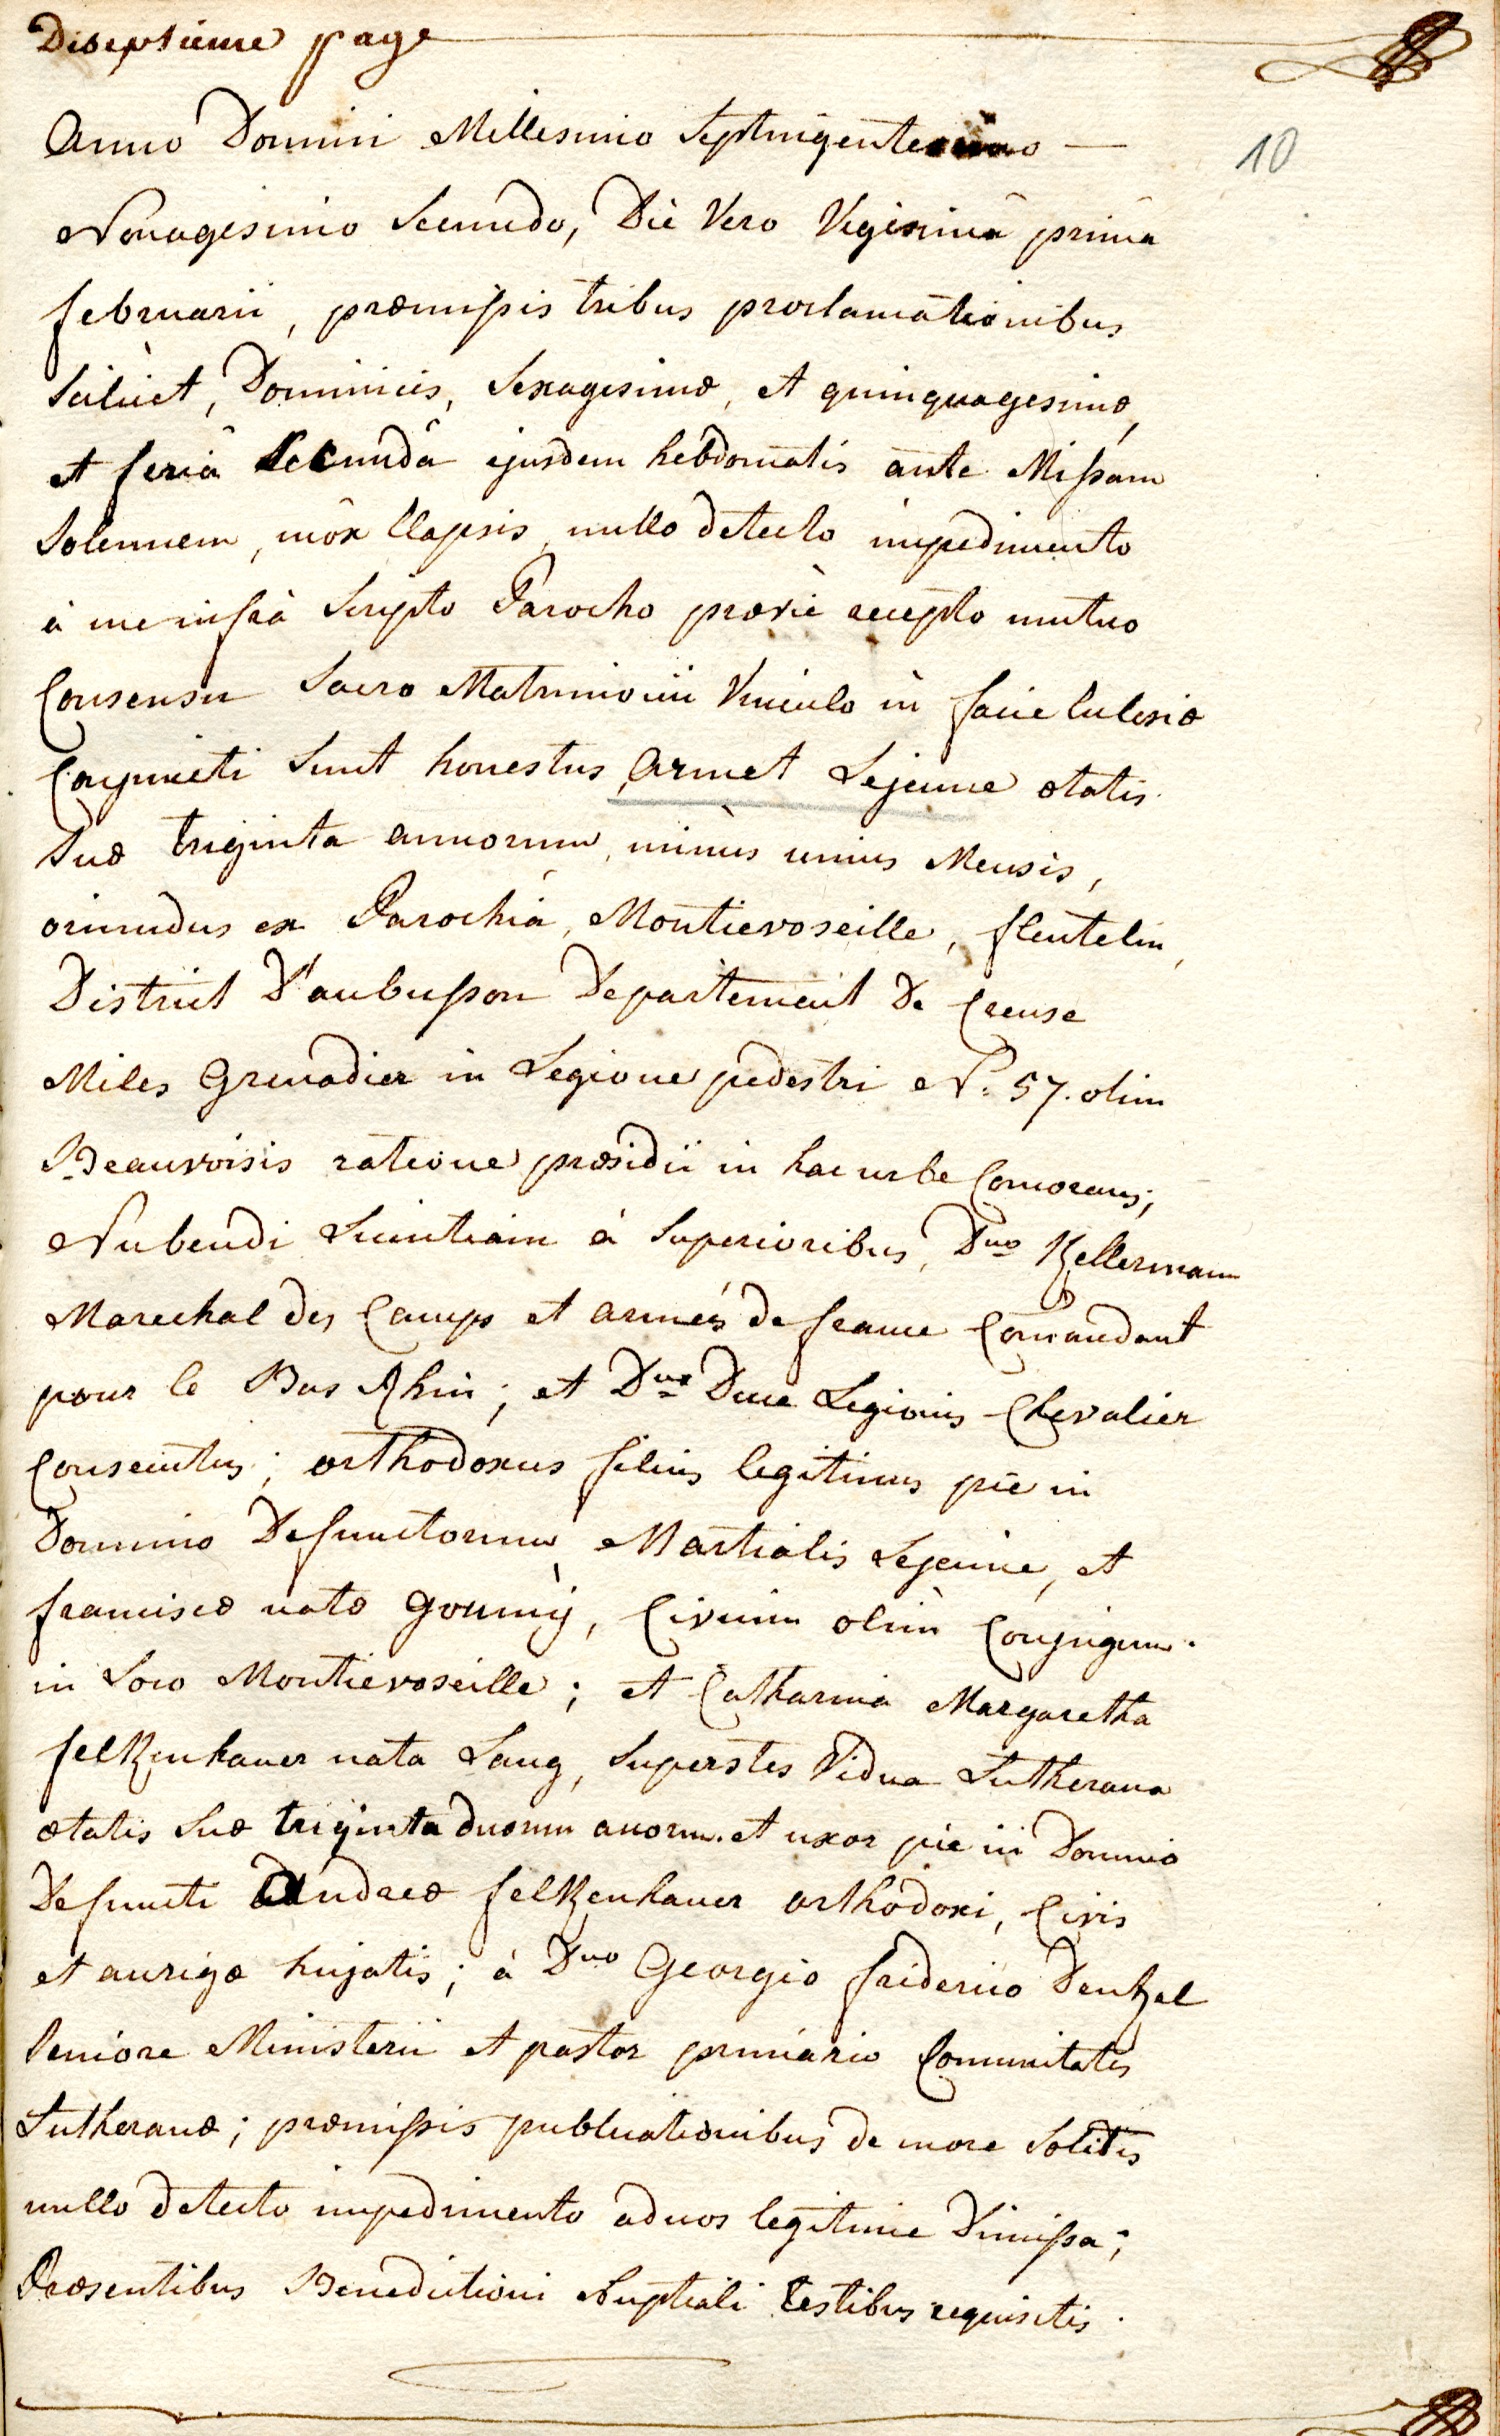 Diseptieme page
10
Anno Domini Millesimo Septingentesimo —
Nonagesimo Secundo, Die Vero Vigesimâ primâ
februarii, præmissis tribus proclamationibus
Scilicet, Dominicis, Sexagesimæ, et quinquagesimæ,
et feriâ Secundâ ejusdem hebdomatis ante Missam
Solemnem, mox Elapsis, nullo detecto impedimento
à me infrà Scripto Parocho præviè recepto mutuo
Consensu Sacro Matrimonii Vinculo in facie Eclesiæ
Conjuncti Sunt honestus, Armet Lejeune ætatis
Suæ triginta annorum, minùs unius Mensis,
oriundus ex Parochiâ, Montievoseille, flentelin,
District D'aubusson Departement De Creuse
Miles Grenadier in Legione pedestri N: 57. olim
Beauvoisis ratione præsidii in hac urbe Comorans;
Nubendi Licentiam à Superioribus, Dno Kellermann
Marechal des Camps et armés de france Comandant
pour le Bas Rhin; et Dno Duce Legionis Chevalier
Consecutus; orthodoxus filius legitimus pie in
Domino Defunctorum Martialis Lejeune, et
franciscæ natæ Goumÿ, Civium olim Conjugum.
in Loco Montievoseille; et Catharina Margaretha
felkenhauer nata Lang, Superstes Vidua Lutherana
ætatis Suæ triginta duorum anorum. et uxor pie in Domino
Defuncti Andreæ felkenhauer orthodoxi, Civis
et aurigæ hujatis; à Dno Georgio friderico Dentzel
Seniore Ministerii et pastor primario Comunitatis
Lutheranæ; præmissis publicationibus de more Solitis
nullo detecto impedimento ad nos legitime Dimissa;
Præsentibus Benedictioni Nuptiali testibus requisitis.